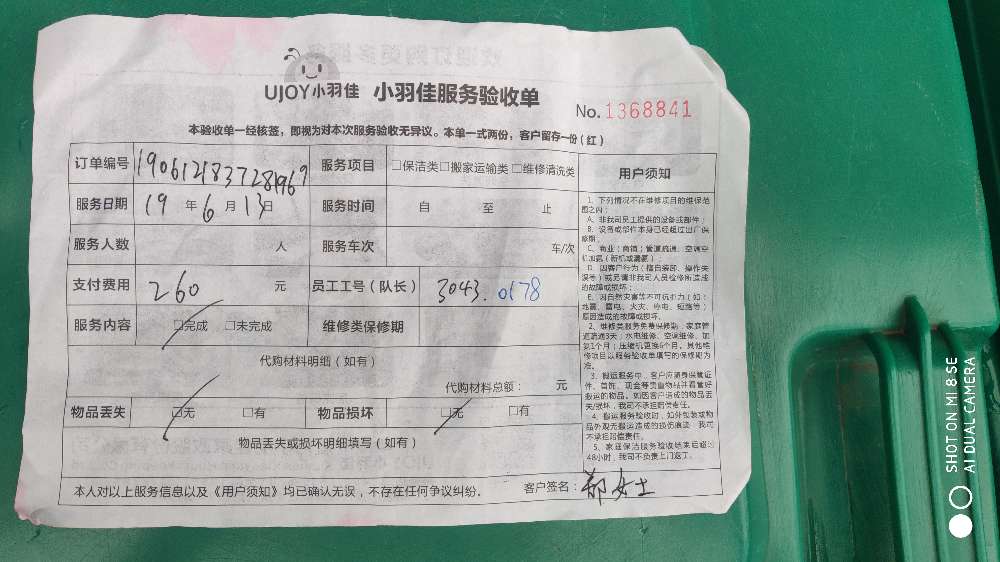 UJOY小羽佳 小羽佳服务验收单
No. 1368841
本验收单一经核签，即视为对本次服务验收无异议。本单一式两份，客户留存一份（红）
订单编号 190612183728196 服务项目 □保洁类□搬家运输类□维修清洗类
服务日期 19 年 6 月 13 日 服务时间 自 至 止
服务人数 人 服务车次 车/次
支付费用 260 元 员工工号（队长） 3043.0178
服务内容 □完成 □未完成 维修类保修期
代购材料明细（如有）
代购材料总额： 元
物品丢失 □无 □有 物品损坏 □无 □有
物品丢失或损坏明细填写（如有）
本人对以上服务信息以及《用户须知》均已确认无误，不存在任何争议纠纷。
客户签名：郑女士
用户须知
1、下列情况不在维修项目的维保范
围之内：
A、非我司员工提供的设备或部件；
B、设备或部件本身已经超过出厂保
修期。
C、商业（商铺）管道疏通、空调空
机加氟（新机或漏氟）；
D、因客户行为（擅自装卸、操作失
误等）或另请非我司人员检修所造成
的故障或损坏；
E、因自然灾害等不可抗拒力（如：
地震、雷电、火灾、停电、短路等）
原因造成的故障或损坏。
2、维修类服务免费保修期：家庭管
道疏通3天；水电维修、空调维修、加
氟1个月；压缩机更换6个月。其他维
修项目以服务验收单填写的保修期为
准。
3、搬运服务中，客户应随身保管证
件、首饰、现金等贵重物品并看管好
搬运的物品。如因客户造成的物品丢
失/损坏，我司不承担赔偿责任。
4、搬运服务验收时，如外包装或物
品外观无搬运造成的损伤痕迹，我司
不承担赔偿责任。
5、家庭保洁服务验收结束后超过
48小时，我司不负责上门返工。
SHOT ON MI 8 SE
AI DUAL CAMERA